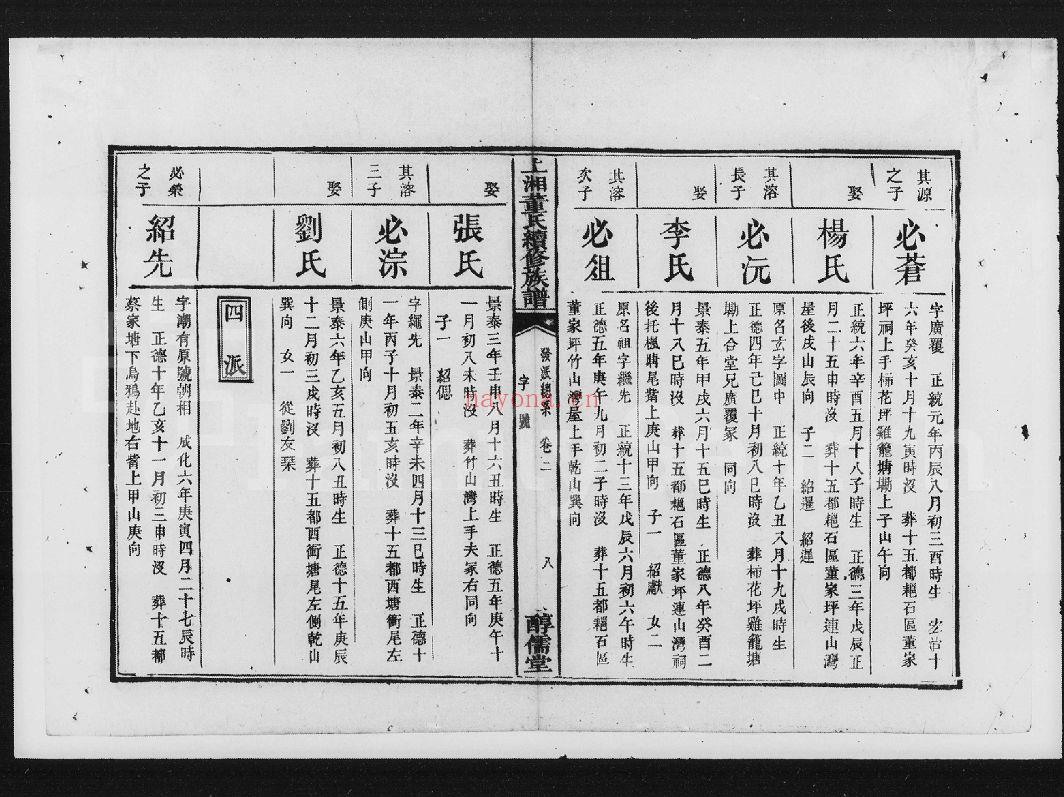 其源
之子
必蒼
字廣覆 正統元年丙辰八月初三酉時生 宏治十
六年癸亥十月十九寅時沒 葬十五都粑石區董家
坪祠上手柿花坪雞籠塘墈上子山午向
娶
楊氏
正統六年辛酉五月十八子時生 正德三年戊辰正
月二十五申時沒 葬十五都粑石區董家坪連山灣
屋後戌山辰向 子二 紹暹 紹遲
其溶
長子
必沅
原名玄字國中 正統十年乙丑八月十九戌時生
正德四年己巳十月初八巳時沒 葬柿花坪雞籠塘
墈上合堂兄廣覆冢 同向
娶
李氏
景泰五年甲戌六月十五巳時生 正德八年癸酉二
月十八巳時沒 葬十五都粑石區董家坪連山灣祠
後托楓騎尾嘴上庚山甲向 子一 紹獻 女二
其溶
次子
必俎
原名祖字繼先 正統十三年戊辰六月初六午時生
正德五年庚午九月初二子時沒 葬十五都粑石區
董家坪竹山灣屋上手乾山巽向
上湘董氏續修族譜
發派總系 卷二
字號
八
醇儒堂
娶
張氏
景泰三年壬申八月十六丑時生 正德五年庚午十
一月初八未時沒 葬竹山灣上手夫冢右同向
子一 紹偲
其溶
三子
必淙
字繩先 景泰二年辛未四月十三巳時生 正德十
一年丙子十月初五亥時沒 葬十五都西塘衝尾左
側庚山甲向
娶
劉氏
景泰六年乙亥五月初八丑時生 正德十五年庚辰
十二月初三戌時沒 葬十五都西衝塘尾左側乾山
巽向 女一 從劉友琹
四派
必榮
之子
紹先
字潮有原號朝相 成化六年庚寅四月二十七辰時
生 正德十年乙亥十一月初三申時沒 葬十五都
蔡家塘下烏鴉赴地右嘴上甲山庚向
nayona.cn